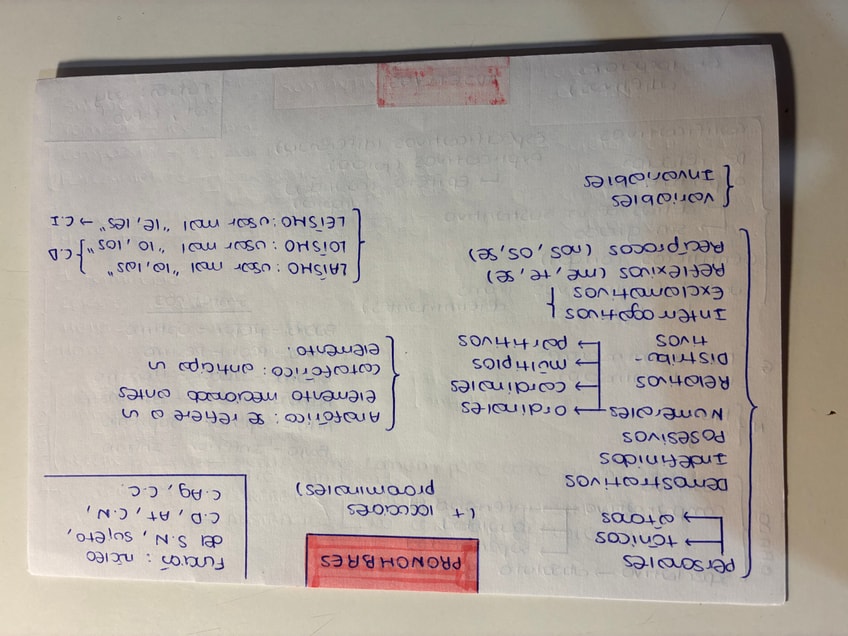 PRONOMBRES
(+ locuciones
pronominales)
Función: núcleo
del S.N, sujeto,
C.D, At, C.N,
C.Ag, C.C.
Personales
tónicos
átonos
Demostrativos
Indefinidos
Posesivos
Numerales → ordinales
→ cardinales
→ múltiplos
→ partitivos
Relativos
Distribu-
tivos
Interrogativos
Exclamativos
Reflexivos (me, te, se)
Recíprocos (nos, os, se)
Variables
Invariables
Anafórico: se refiere a un
elemento mecionado antes
catafórico: anticipa un
elemento.
LAÍSMO: usar mal "la, las"
LOÍSMO: usar mal "lo, los" } C.D
LEÍSMO: usar mal "le, les" → C.I